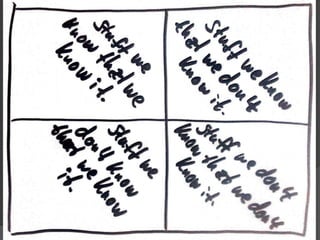 Stuff we
know that we
know it.
Stuff we know
that we don't
know it.
Stuff we
don't know
that we know
it.
Stuff we don't
know that we don't
know it.